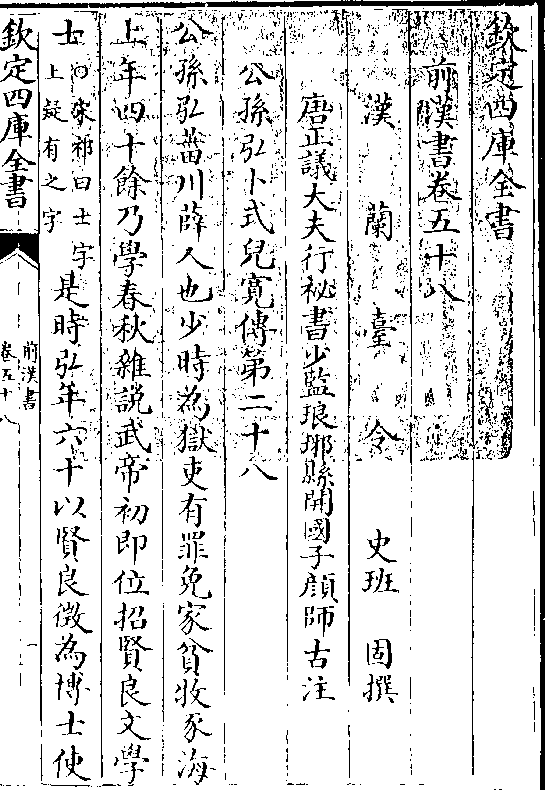 欽定四庫全書
前漢書卷五十八
漢蘭臺令史班固撰
唐正議大夫行祕書少監琅邪縣開國子顔師古注
公孫弘卜式兒寛傳第二十八
公孫弘菑川薛人也少時為獄吏有罪免家貧牧豕海
上年四十餘乃學春秋雜説武帝初即位招賢良文學
士○宋祁曰士字上疑有之字是時弘年六十以賢良徵為博士使
欽定四庫全書
前漢書
卷五十八
一